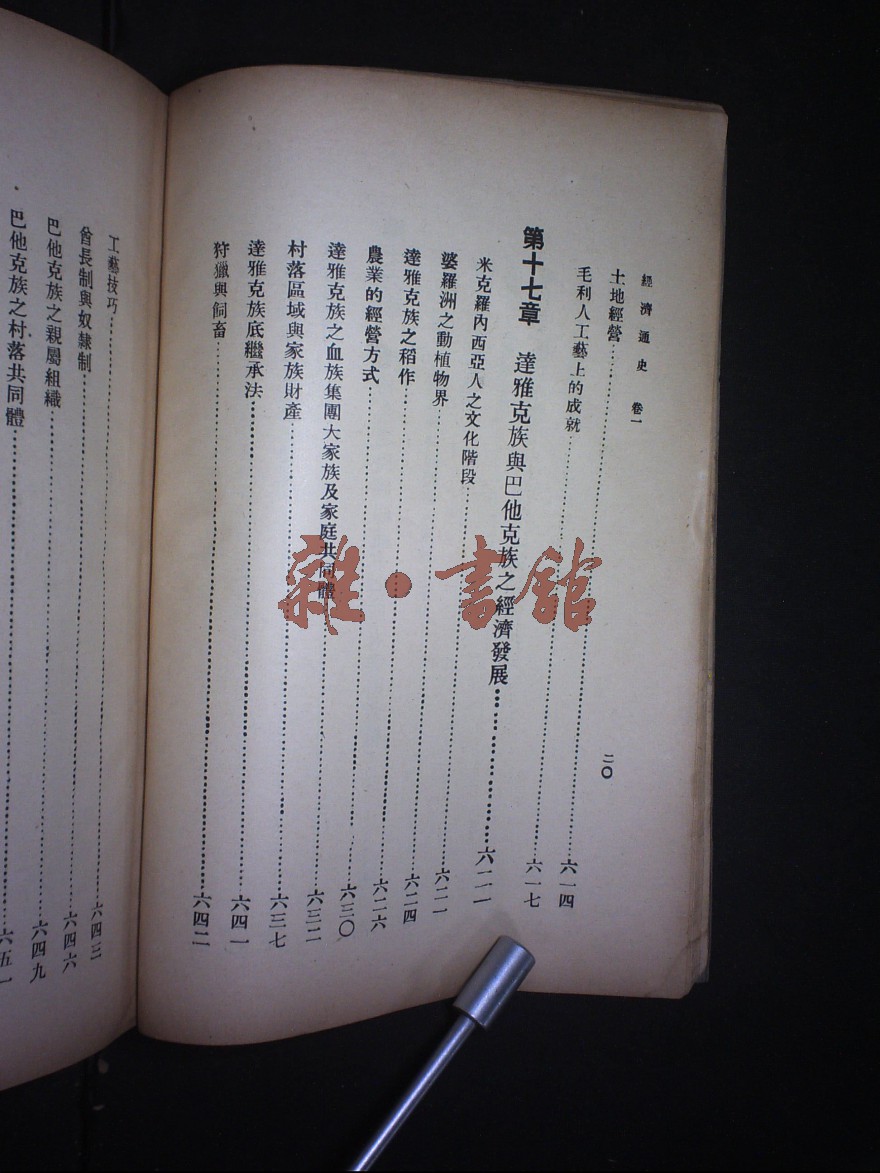 經濟通史 卷一 二〇
土地經營……六一四
毛利人工藝上的成就……六一七
第十七章 達雅克族與巴他克族之經濟發展……六二一
米克羅內西亞人之文化階段……六二一
婆羅洲之動植物界……六二四
達雅克族之稻作……六二六
農業的經營方式……六三〇
達雅克族之血族集團大家族及家庭共同體……六三二
村落區域與家族財產……六三七
達雅克族底繼承法……六四一
狩獵與飼畜……六四二
工藝技巧……六四三
酋長制與奴隸制……六四六
巴他克族之親屬組織……六四九
巴他克族之村落共同體……六五一
雜·書館